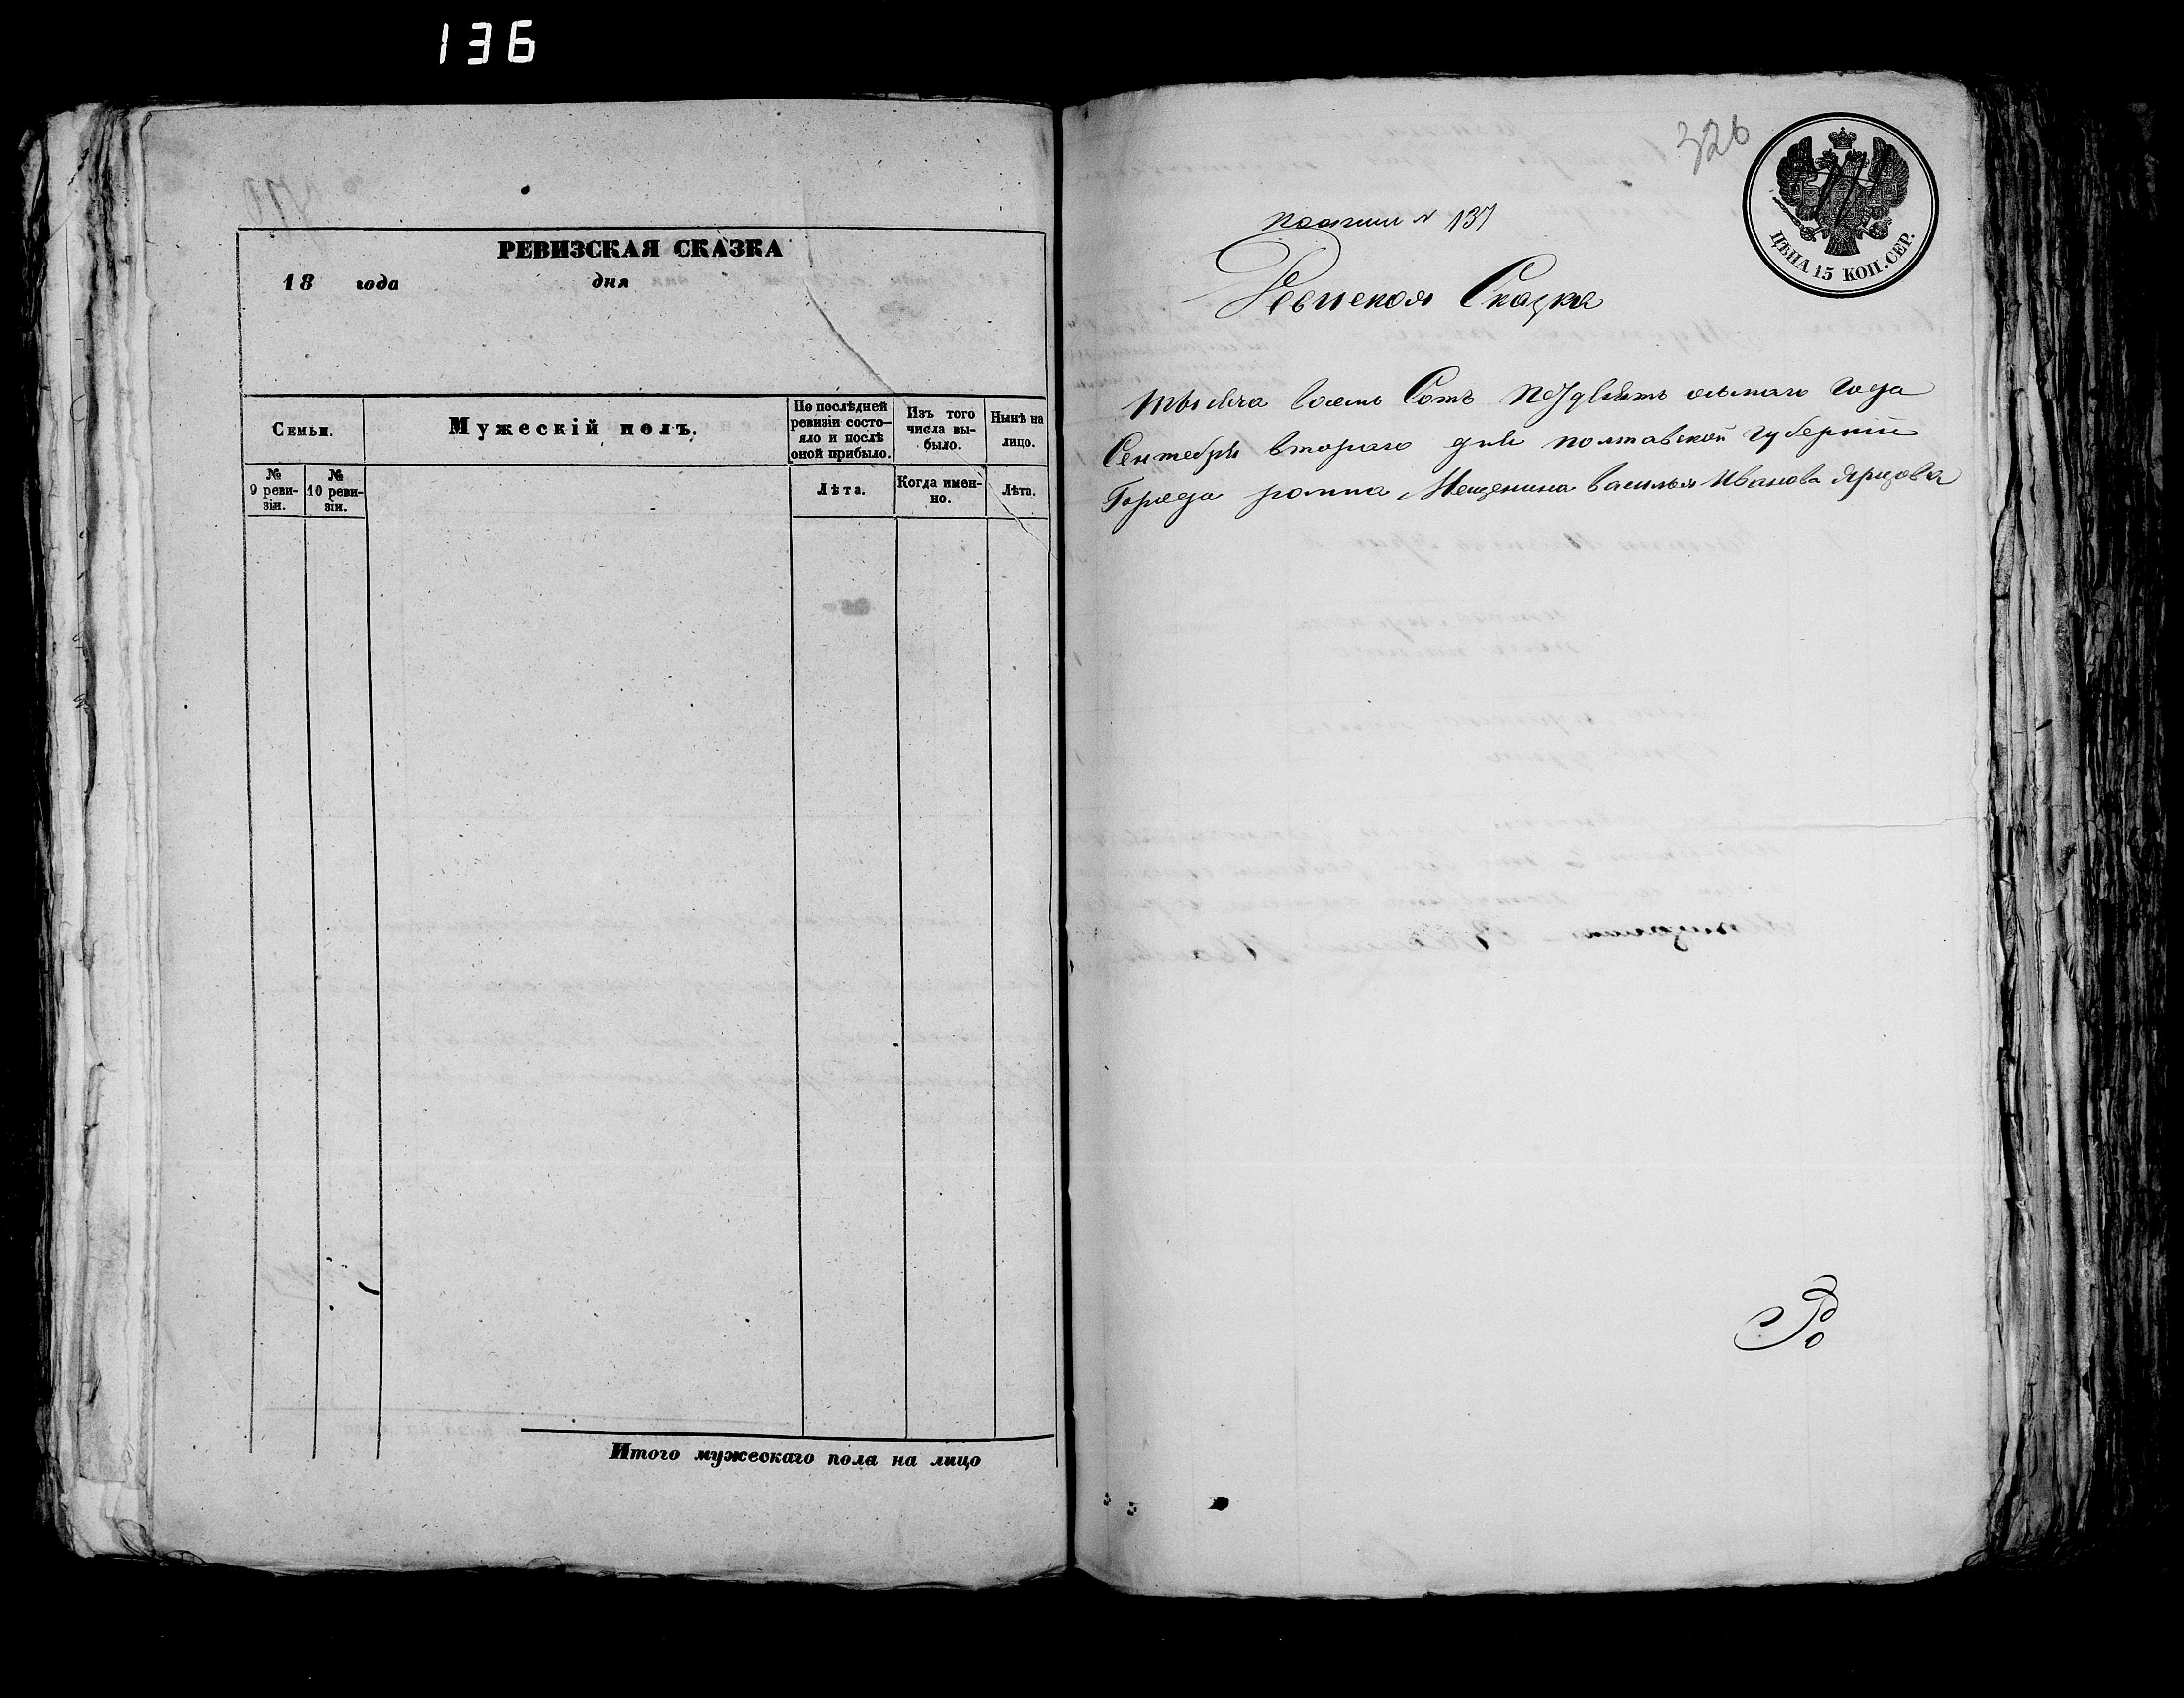 136
РЕВИЗСКАЯ СКАЗКА
18 года дня
Семьи.
Мужескій полъ.
По послѣдней ревизіи состо-
яло и послѣ оной прибыло.
Изъ того числа вы-
было.
Нынѣ на лицо.
№ 9 реви-
зіи.
№ 10 реви-
зіи.
Лѣта.
Когда имен-
но.
Лѣта.
Итого мужескаго пола на лицо
326
ЦѢНА 15 КОП. СЕР.
№ 137
Ревиская Сказка
тысяча восемь Сотъ осьмаго года
Сентября втораго дня полтавской губерніи
Города ромна Мещенина василья Иванова Ярцова